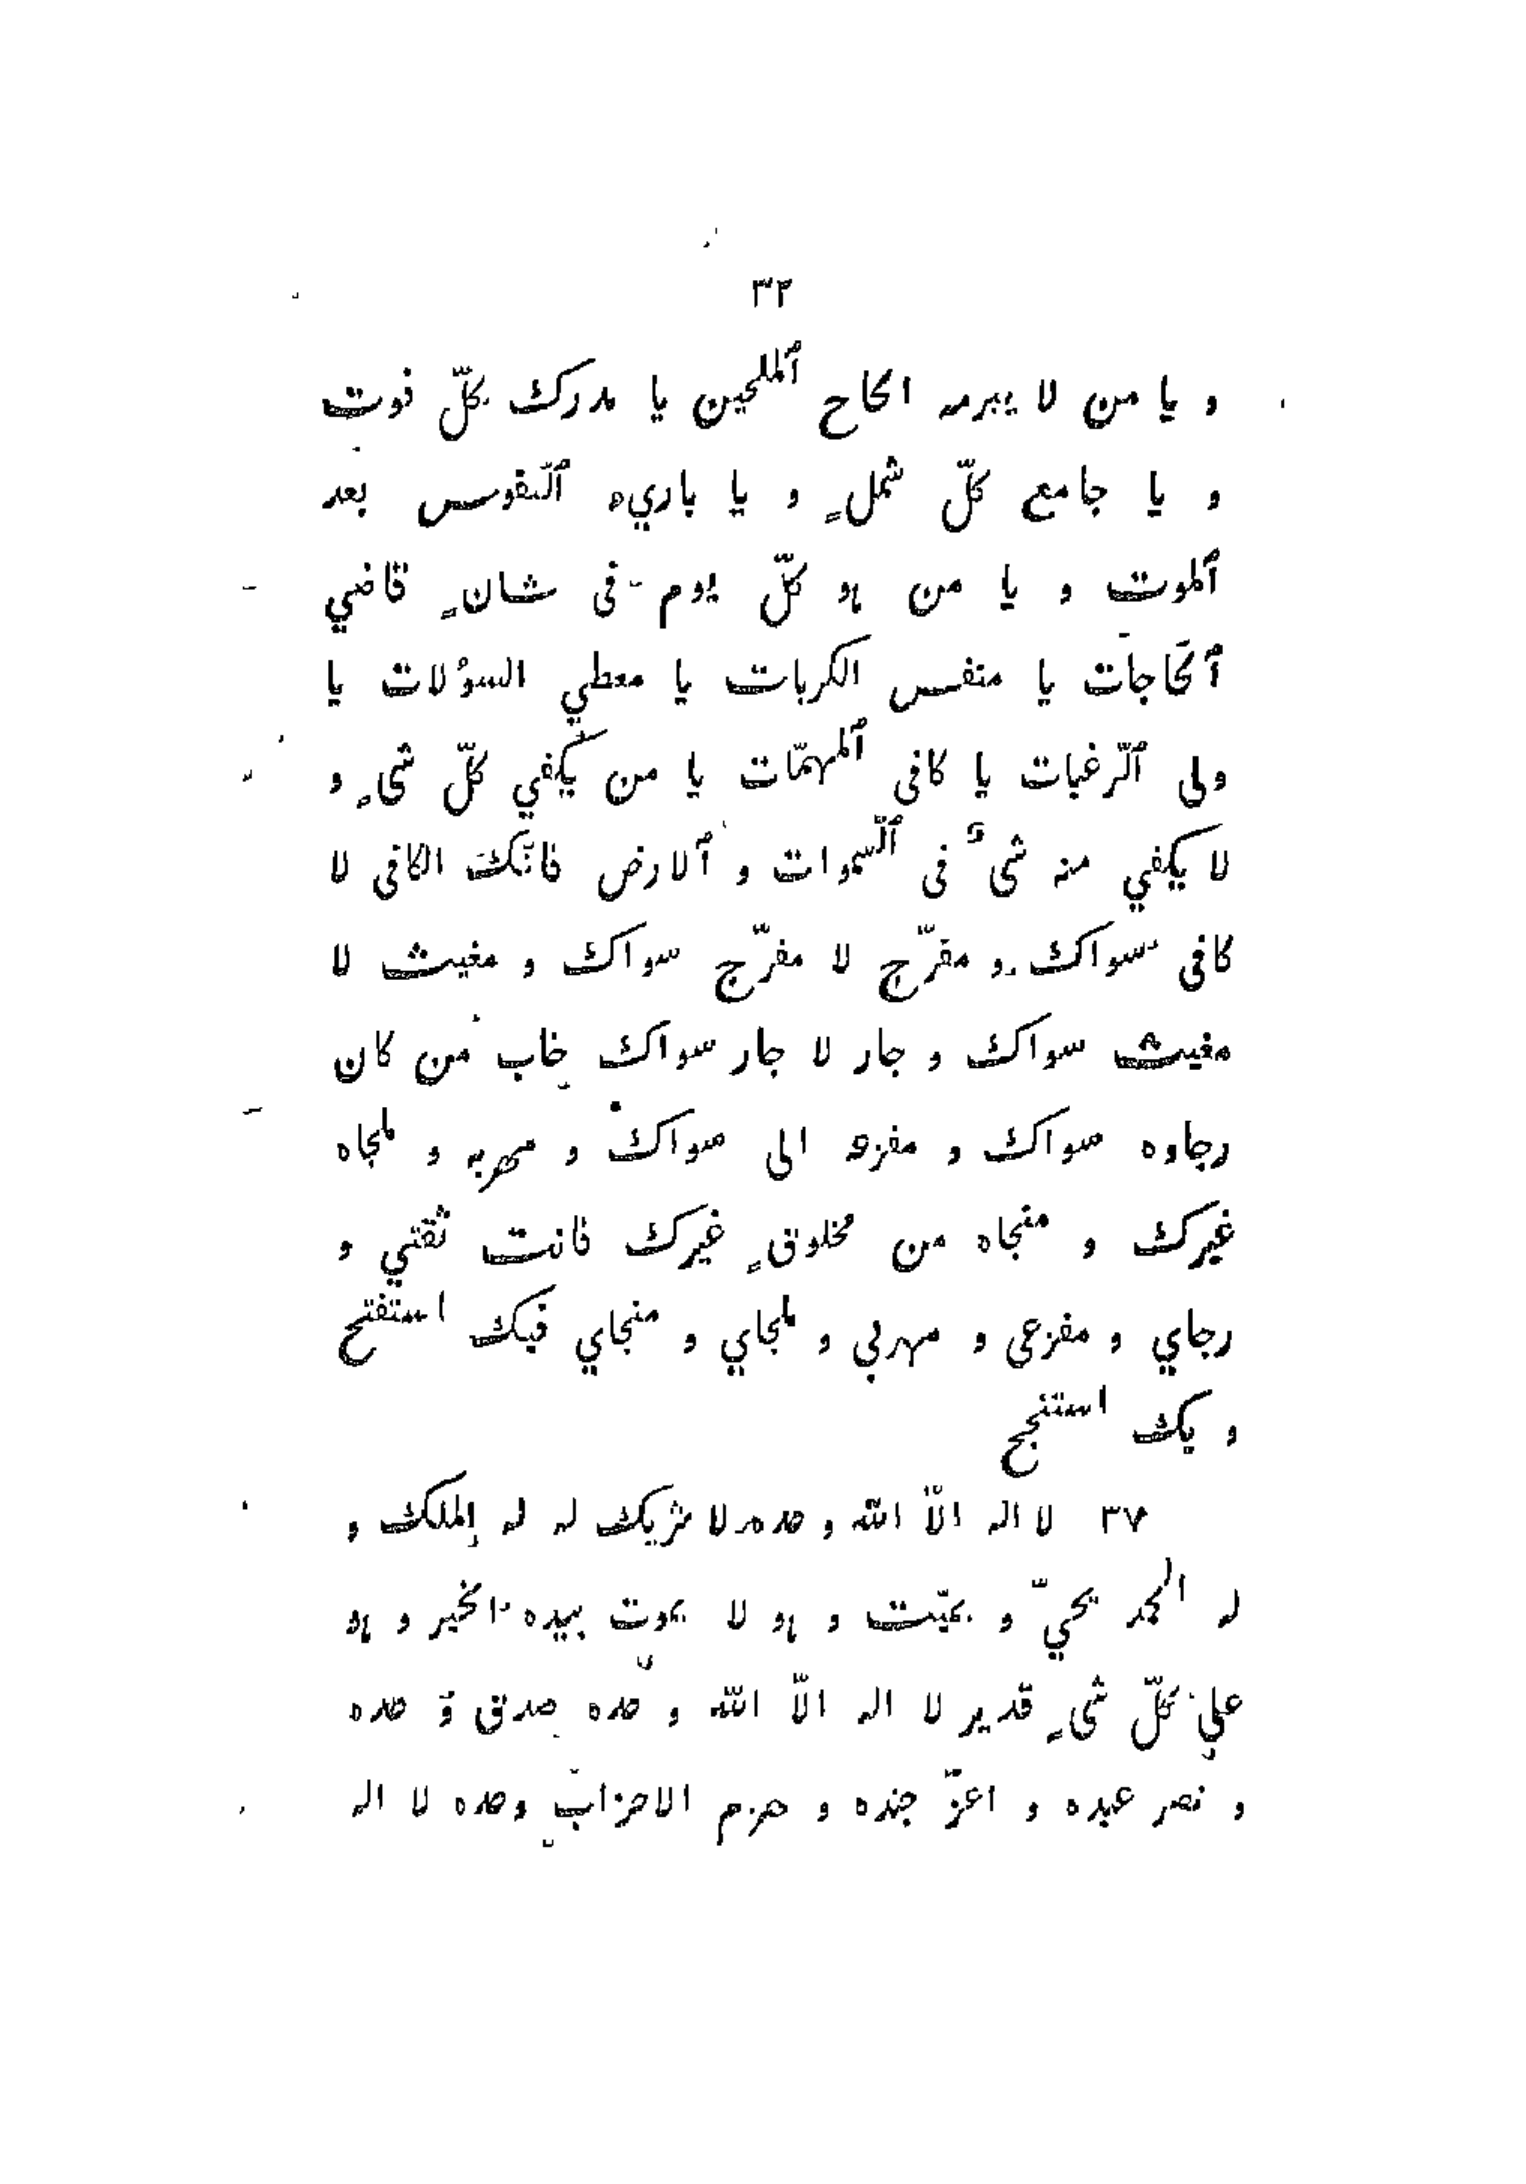 ٣٢
و يا من لا يبرمه الحاح ٱلملحين يا مدرك كلّ فوت
و يا جامع كلّ شملٍ و يا باريء ٱلنّفوس بعد
ٱلموت و يا من هو كلّ يوم فى شانٍ قاضي
ٱلحاجات يا منفس الكربات يا معطي السؤلات يا
ولى ٱلرّغبات يا كافى ٱلمهمّات يا من يكفي كلّ شىٍ و
لا يكفي منه شىٌ فى ٱلسّموات و ٱلارض فانّك الكافى لا
كافى سواك و مفرّج لا مفرّج سواك و مغيث لا
مغيث سواك و جار لا جار سواك خاب من كان
رجاوه سواك و مفزعه الى سواك و مهربه و ملجاه
غيرك و منجاه من مخلوقٍ غيرك فانت ثقتي و
رجاي و مفزعى و مهربي و ملجاي و منجاي فبك استفتح
و بك استنجح
٣٧ لا اله الاّ اللّه وحده لا شريك له له الملك و
له الحمد يحيّي و يميّت و هو لا يموت بيده الخير و هو
علي كلّ شىٍ قدير لا اله الاّ اللّه وحده صدق وعده
و نصر عبده و اعزّ جنده و هزم الاحزاب وحده لا اله